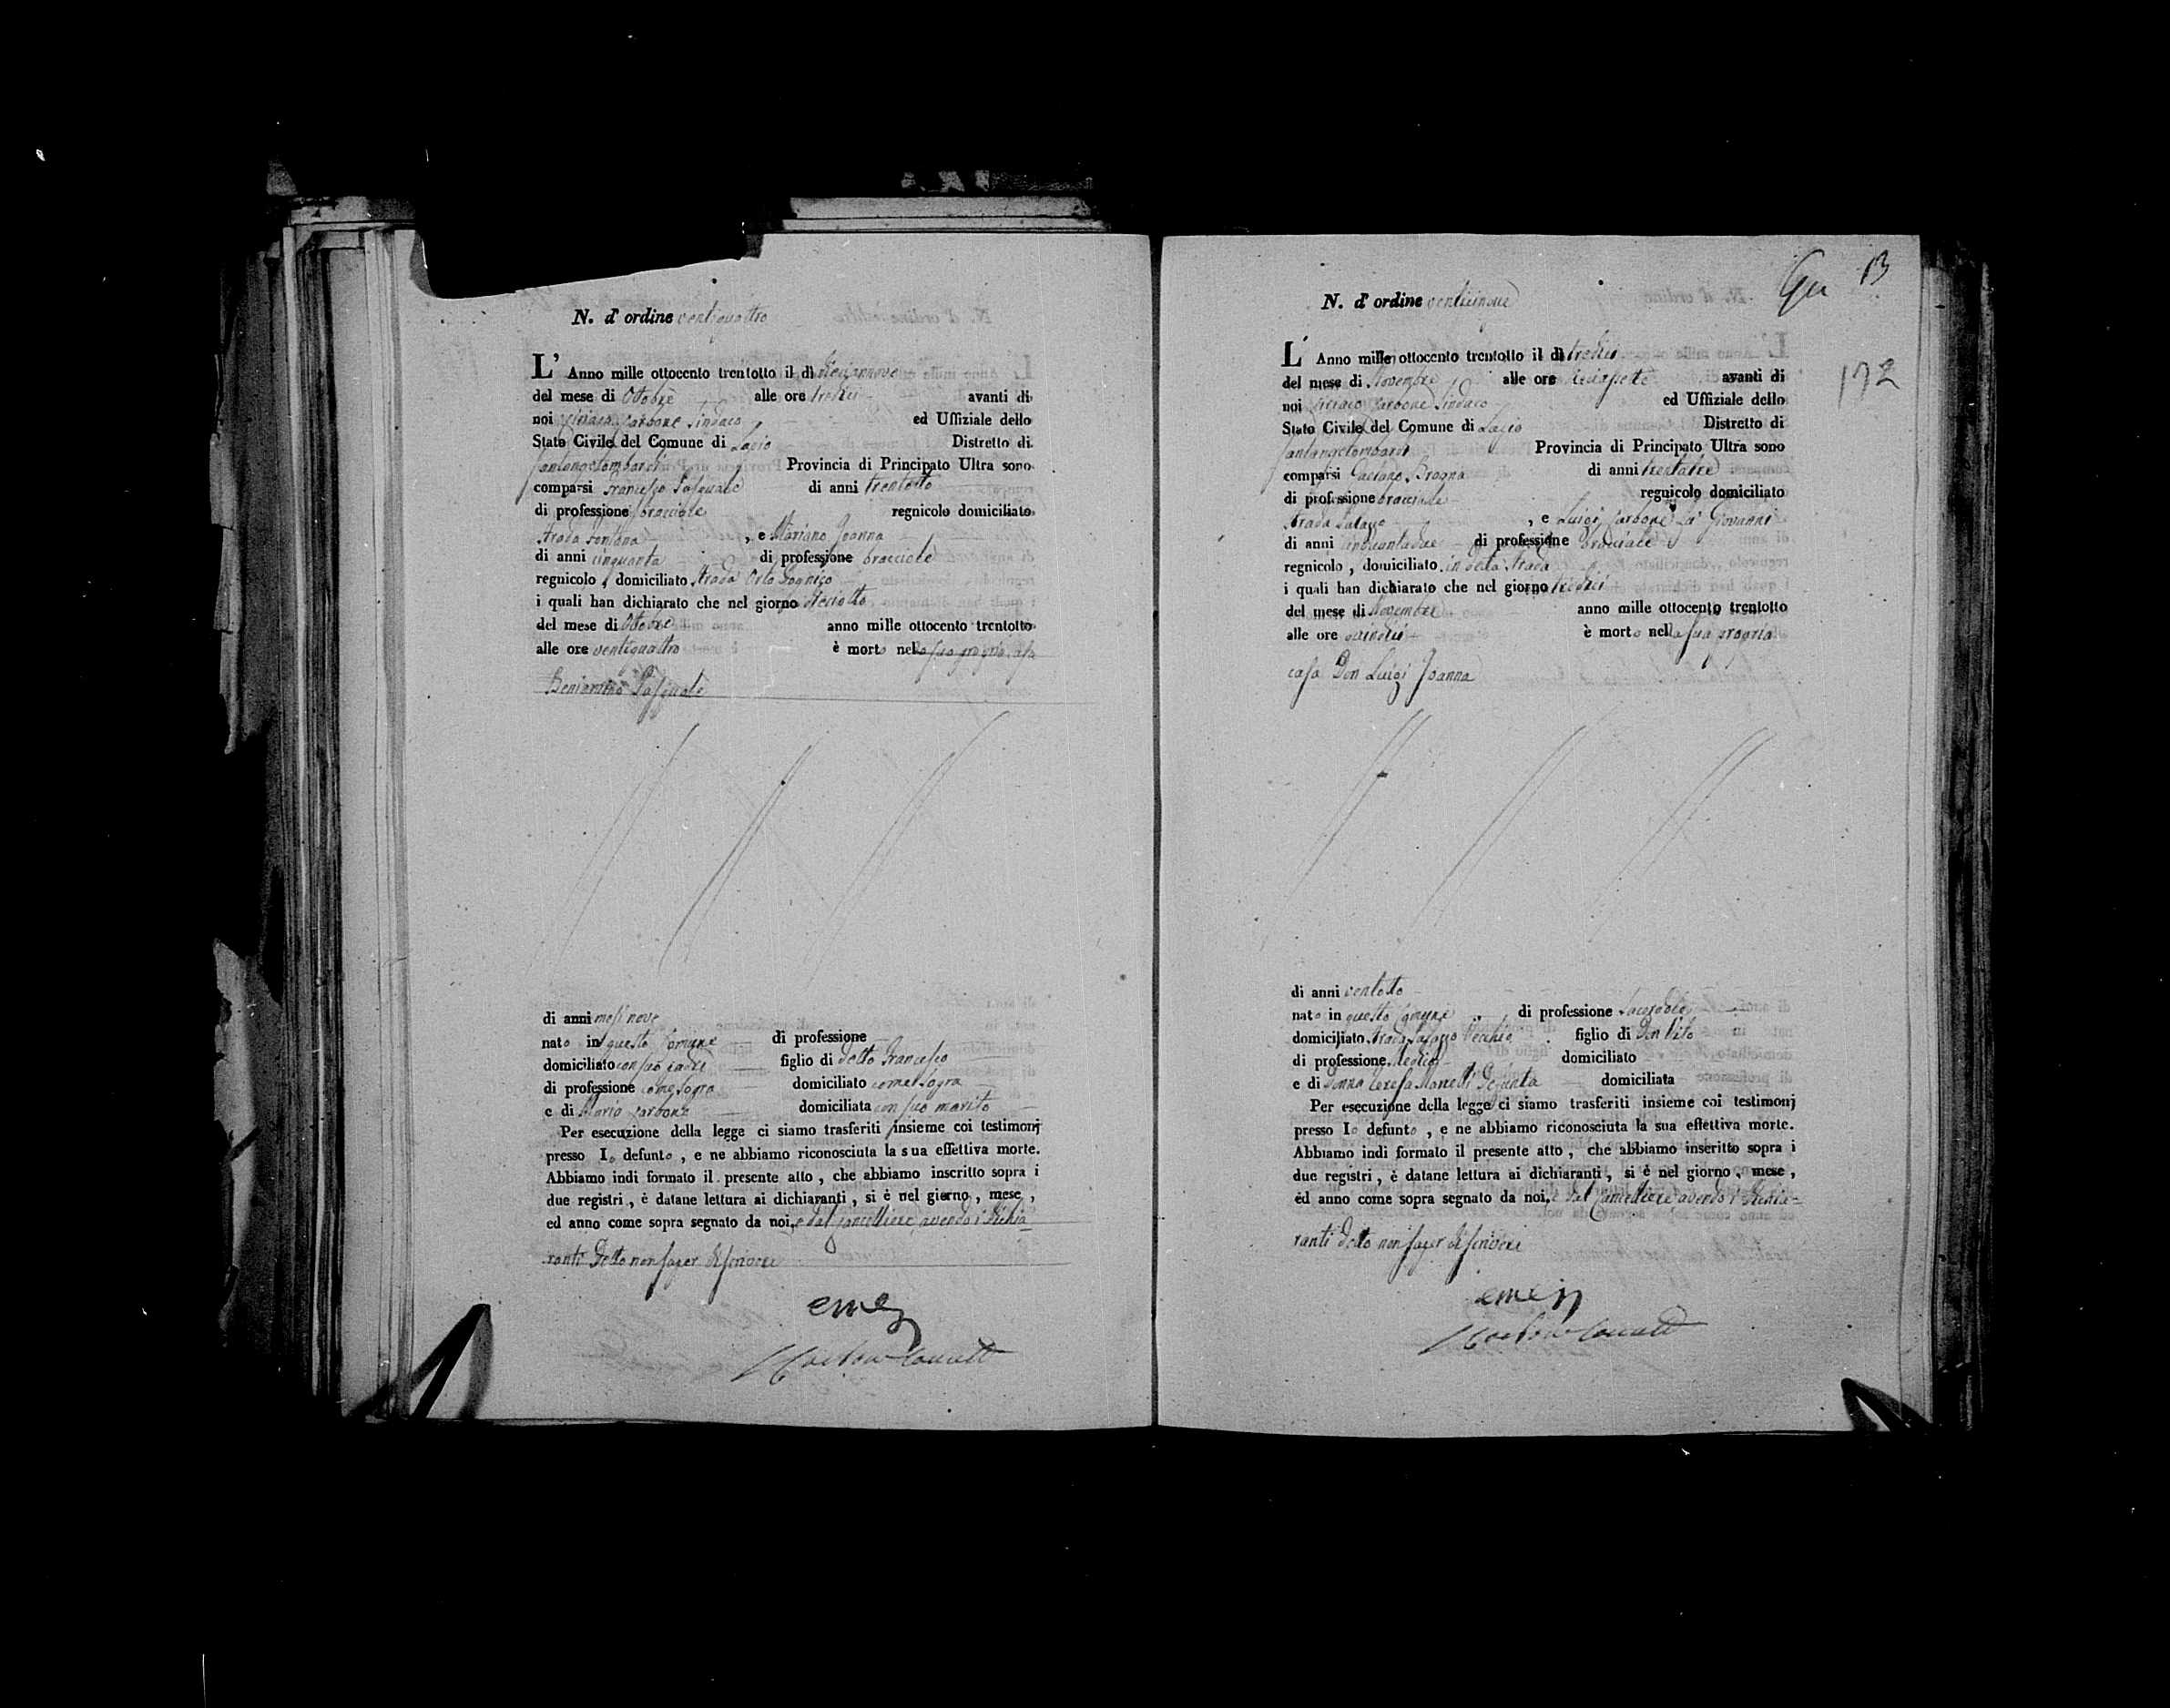 N. d' ordine ventiquattro
L' Anno mille ottocento trentotto il dì diecianove
del mese di Ottobre alle ore tredici avanti di
noi Ciriaco Carbone Sindaco ed Uffiziale dello
Stato Civile del Comune di Distretto di
Santangelombardi Provincia di Principato Ultra sono
comparsi Francesco Pasquale di anni trentotto
di professione bracciale regnicolo domiciliato
Strada Fontana , e Mariano Joanna
di anni cinquanta di professione bracciale
regnicolo , domiciliato Strada Orto
i quali han dichiarato che nel giorno dieciotto
del mese di Ottobre anno mille ottocento trentotto
alle ore ventiquattro è morto nella sua propria casa
Beniamino Pasquale
di anni mesi nove
nato in questo Comune di professione
domiciliato con suo padre figlio di detto Francesco
di professione come sopra domiciliato come sopra
e di Maria Carbone domiciliata con suo marito
Per esecuzione della legge ci siamo trasferiti insieme coi testimonj
presso lo defunto , e ne abbiamo riconosciuta la sua effettiva morte.
Abbiamo indi formato il presente atto , che abbiamo inscritto sopra i
due registri , è datane lettura ai dichiaranti , si è nel giorno , mese ,
ed anno come sopra segnato da noi, e dal Cancelliere avendo i dichia-
ranti detto non saper di scrivere
13
N. d' ordine venticinque
172
L' Anno mille ottocento trentotto il dì tredici
del mese di Novembre alle ore avanti di
noi Ciriaco Carbone Sindaco ed Uffiziale dello
Stato Civile del Comune di Distretto di
Santangelombardi Provincia di Principato Ultra sono
comparsi Gaetano Brogna di anni trentatre
di professione bracciale regnicolo domiciliato
Strada Palazzo , e Luigi Carbone Giovanni
di anni cinquantadue di professione bracciale
regnicolo , domiciliato in detta Strada
i quali han dichiarato che nel giorno tredici
del mese di Novembre anno mille ottocento trentotto
alle ore quindici è morto nella sua propria
casa Don Luigi Joanna
di anni ventotto
nato in questo Comune di professione Sacerdote
domiciliato Strada Palazzo Vecchio figlio di Don Vito
di professione Medico domiciliato
e di Donna Teresa defunta domiciliata
Per esecuzione della legge ci siamo trasferiti insieme coi testimonj
presso lo defunto , e ne abbiamo riconosciuta la sua effettiva morte.
Abbiamo indi formato il presente atto , che abbiamo inscritto sopra i
due registri , è datane lettura ai dichiaranti , si è nel giorno , mese ,
ed anno come sopra segnato da noi, e dal Cancelliere avendo i dichia-
ranti detto non saper di scrivere